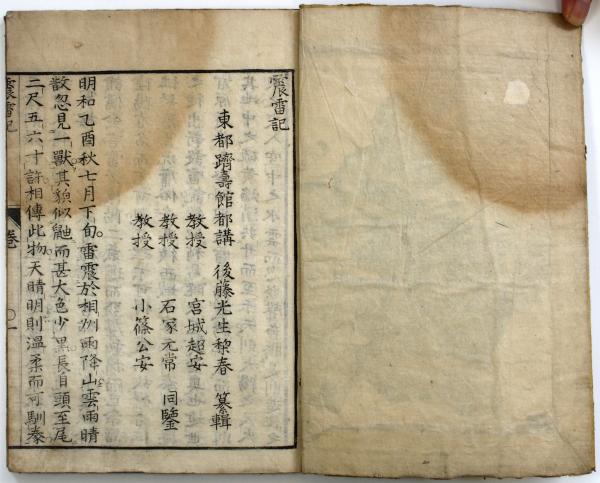 震雷記
東都躋壽館都講 後藤光生棃春 纂輯
教授 宮城超安
教授 石冢元常 同鑒
教授 小篠公安
明和乙酉秋七月下旬雷震於相州雨降山雲雨晴
散忽見一獸其貌似鼬而甚大色少黑長自頭至尾
二尺五六寸許相傳此物天晴明則溫柔而可馴豢
震雷記 卷 一